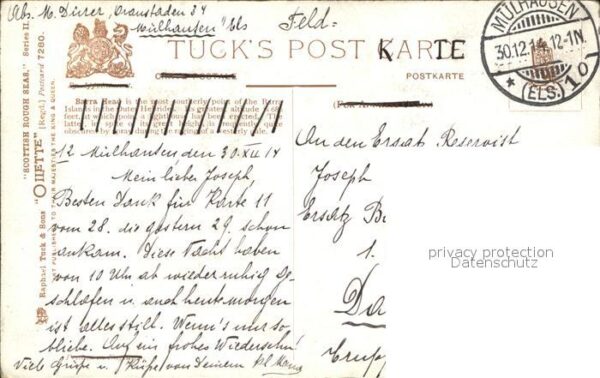 Abs. M. Dürer, Oranstaden 34
Mülhausen Els
Feld=
TUCK'S POST KARTE
POSTKARTE
MÜLHAUSEN
30.12.14. 12-1N.
* (ELS.) 1 o
"SCOTTISH ROUGH SEAS." Series II.
"OILETTE" [Regd.] Postcard 7280.
Raphael Tuck & Sons
ART PUBLISHERS TO THEIR MAJESTIES THE KING & QUEEN.
Barra Head is the most southerly point of the Barra
Islands in the Outer Hebrides
obscured by spray during the raging of a westerly gale.
12 Mülhausen den 30.XII 14
Mein lieber Joseph!
Besten Dank für Karte 11
vom 28. die gestern 29. schon
ankam. Diese Nacht haben
von 10 Uhr ab wieder ruhig ge-
schlafen u. auch heute morgen
ist alles still. Wenn's nur so
bliebe. Auf ein frohes Wiedersehn!
Viele Grüße u. Küsse von Deinem kl. Mama
An den Ersatz Reservist
Joseph
Ersatz
1.
Da
Grupp
privacy protection
Datenschutz